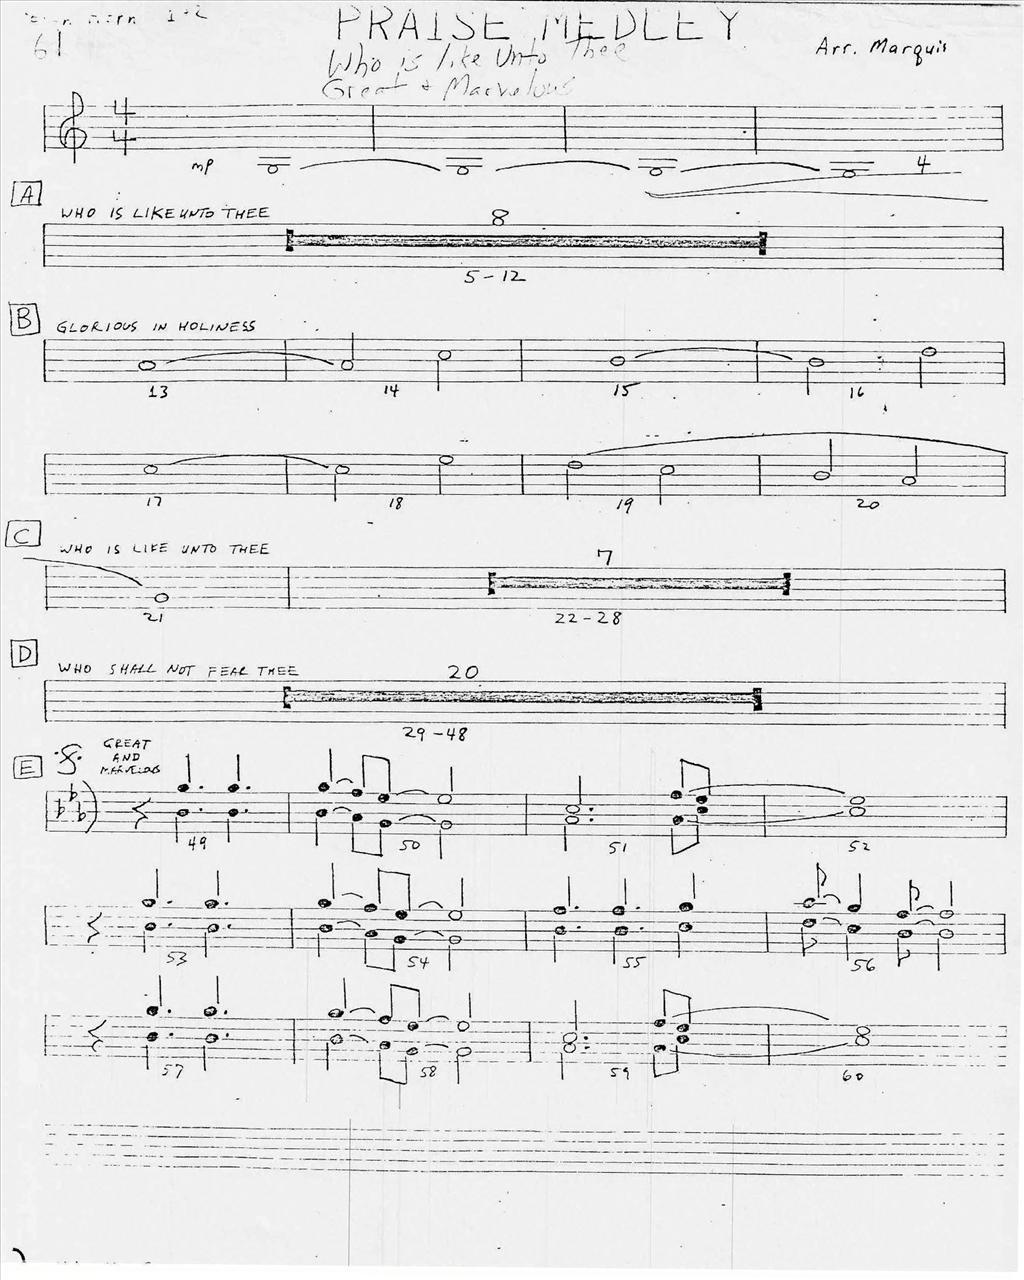 Horn 1+2
61
PRAISE MEDLEY
Who is like Unto Thee
Great + Marvelous
Arr. Marquis
4
4
mp
4
A
WHO IS LIKE UNTO THEE
8
5-12
B
GLORIOUS IN HOLINESS
13 14 15 16
17 18 19 20
C
WHO IS LIKE UNTO THEE
7
21 22-28
D
WHO SHALL NOT FEAR THEE
20
29-48
E
GREAT
AND
MARVELOUS
49 50 51 52
53 54 55 56
57 58 59 60